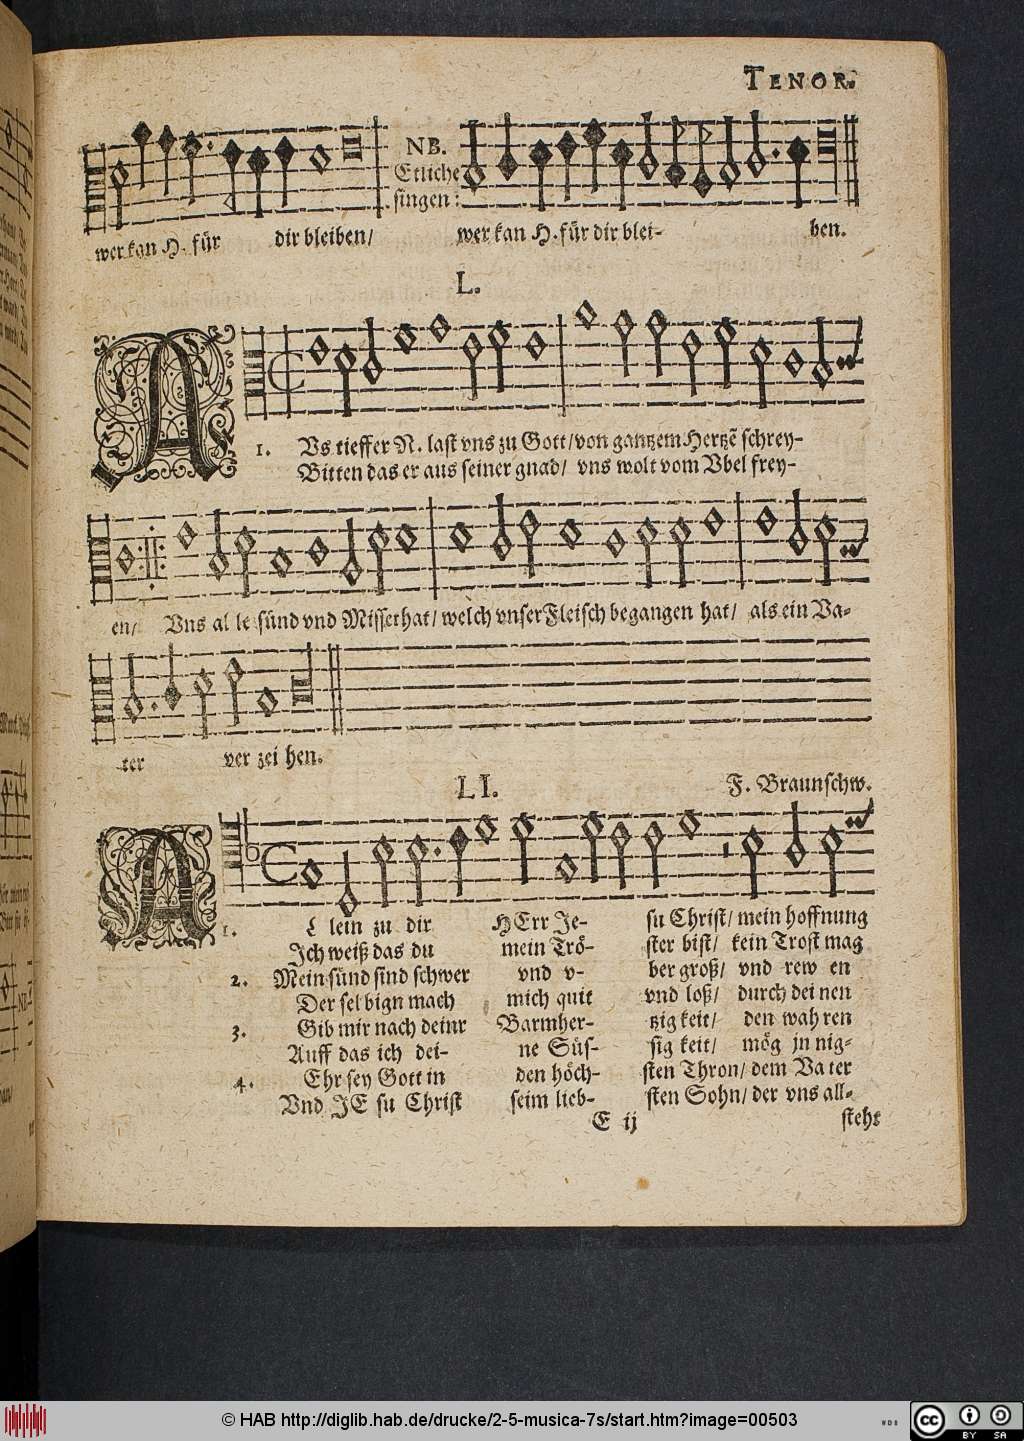 TENOR.
NB.
Etliche
singen:
wer kan H. für dir bleiben/ wer kan H. für dir blei- ben.
L.
1. AVs tieffer N. last vns zu Gott/ von gantzem Hertzẽ schrey-
Bitten das er aus seiner gnad/ vns wolt vom Vbel frey-
en/ Vns al le sünd vnd Missethat/ welch vnser Fleisch begangen hat/ als ein Va-
ter ver zei hen.
LI. F. Braunschw.
1. ALlein zu dir HErr Je- su Christ/ mein hoffnung
Ich weiß das du mein Trö- ster bist/ kein Trost mag
2. Mein sünd sind schwer vnd v- ber groß/ vnd rew en
Der sel bign mach mich quit vnd loß/ durch dei nen
3. Gib mir nach deinr Barmher- tzig keit/ den wah ren
Auff das ich dei- ne Süs- sig keit/ mög jn nig-
4. Ehr sey Gott in den höch- sten Thron/ dem Va ter
Vnd JE su Christ seim lieb- sten Sohn/ der vns all-
E ij steht
© HAB http://diglib.hab.de/drucke/2-5-musica-7s/start.htm?image=00503
WDB
cc BY SA